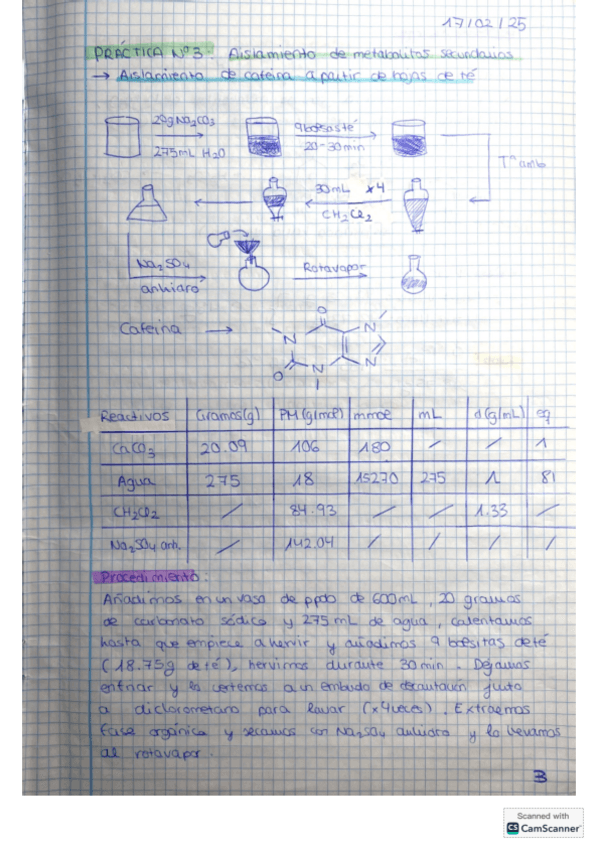 17/02/25
PRÁCTICA Nº3: Aislamiento de metabolitos secundarios
→ Aislamiento de cafeína a partir de hojas de té
20g Na₂CO₃
275mL H₂O
9 bolsas té
20-30min
Tª amb
30mL x4
CH₂Cl₂
Na₂SO₄
anhidro
Rotavapor
Cafeína →
O
N
N
N
N
O
Reactivos Gramos(g) PM(g/mol) mmol mL d(g/mL) eq
CaCO₃ 20.09 106 180 / / 1
Agua 275 18 15270 275 1 81
CH₂Cl₂ / 84.93 / / 1.33 /
Na₂SO₄ anh. / 142.04 / / / /
Procedimiento:
Añadimos en un vaso de ppdo de 600mL, 20 gramos
de carbonato sódico y 275 mL de agua, calentamos
hasta que empiece a hervir y añadimos 9 bolsitas de té
(18.75g de té), hervimos durante 30 min. Dejamos
enfriar y lo vertemos a un embudo de decantación junto
a diclorometano para lavar (x4 veces). Extraemos
fase orgánica y secamos con Na₂SO₄ anhidro y lo llevamos
al rotavapor.
3
Scanned with
CS CamScanner